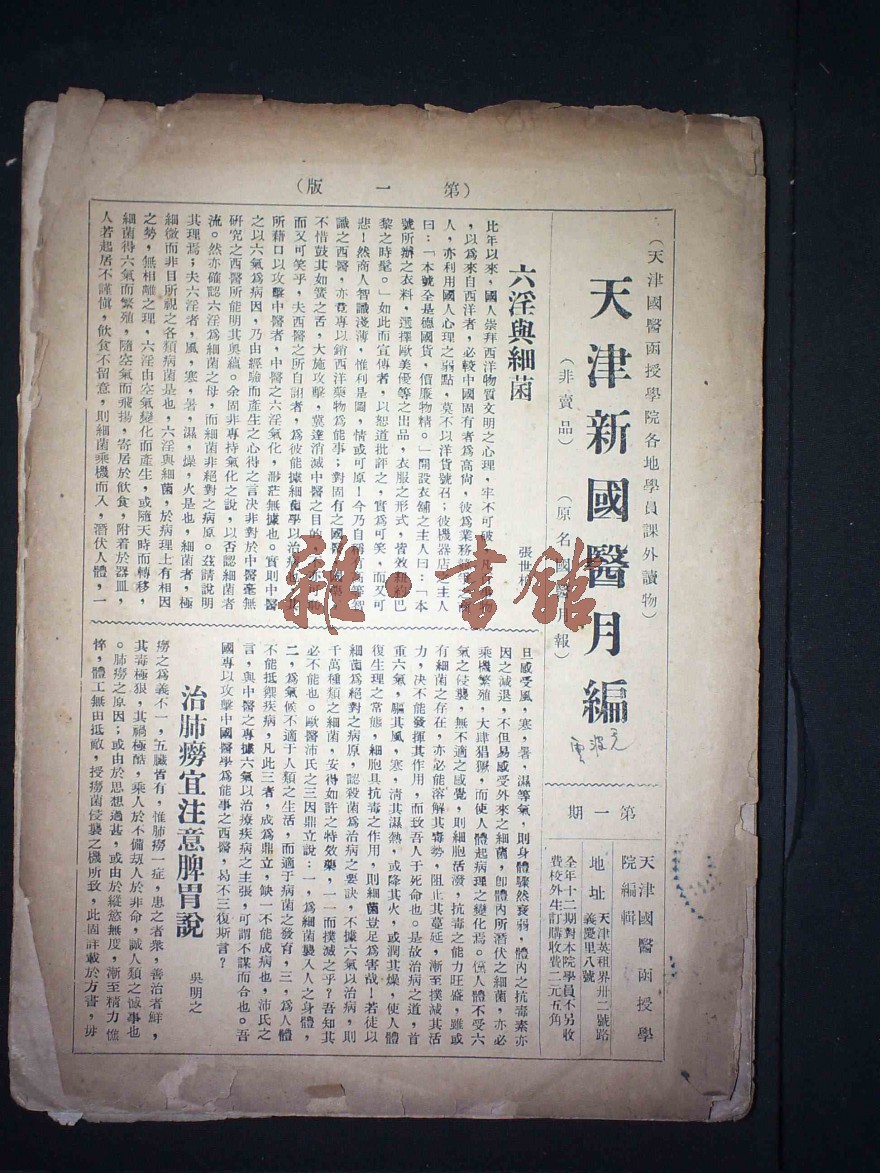 （第一版）
（天津國醫函授學院各地學員課外讀物）
天津新國醫月編
（非賣品）
（原名國醫月報）
第一期
天津國醫函授學
院編輯
地址 天津英租界卅二號路
義慶里八號
全年十二期對本院學員不另收
費校外生訂購收費二元五角
六淫與細菌
張世
比年以來，國人崇拜西洋物質文明之心理，牢不可破，凡
，以爲來自西洋者，必較中國固有者爲高尙，彼爲業務
人，亦利用國人心理之弱點，莫不以洋貨號召；彼機器店之主人
曰：「本號全是德國貨，價廉物精。」開設衣舖之主人曰：「本
號所辦之衣料，選擇歐美優等之出品，衣服之形式，皆效紐約巴
黎之時髦。」如此而宣傳者，以恕道批評之，實爲可笑，而又可
悲！然商人智識淺薄，惟利是圖，情或可原！今乃自稱有高等智
識之西醫，亦竟專以銷西洋藥物爲能事；對固有之國醫國藥
不惜鼓其如簧之舌，大施攻擊，冀達消滅中醫之目的，不亦可
而又可笑乎，夫西醫之所自詡者，爲彼能據細菌學以治病，其
所藉口以攻擊中醫者，中醫之六淫氣化，渺茫無據也。實則中醫
之以六氣爲病因，乃由經驗而產生之心得之言決非對於中醫毫無
研究之西醫所能明其奧蘊。余固非專持氣化之說，以否認細菌者
流。然亦確認六淫爲細菌之母，而細菌非絕對之病原。茲請說明
其理焉；夫六淫者，風，寒，暑，濕，燥，火是也，細菌者，極
細微而非目所視之各類病菌是也，六淫與細菌，於病理上有相因
之勢，無相離之理，六淫由空氣變化而產生，或隨天時而轉移，
細菌得六氣而繁殖，隨空氣而飛揚，寄居於飲食，附着於器皿，
人若起居不謹愼，飲食不留意，則細菌乘機而入，潛伏人體，一
旦感受風，寒，暑，濕等氣，則身體驟然衰弱，體內之抗毒素亦
因之減退，不但易感受外來之細菌，卽體內所潛伏之細菌，亦必
乘機繁殖，大肆猖獗，而使人體起病理之變化焉。倘人體不受六
氣之侵襲，無不適之感覺，則細胞活潑，抗毒之能力旺盛，雖或
有細菌之存在，亦必能溶解其毒勢，阻止其蔓延，漸至撲滅其活
力，决不能發揮其作用，而致吾人于死命也。是故治病之道，首
重六氣，驅其風，寒，清其濕熱，或降其火，或潤其燥，使人體
復生理之常態，細胞具抗毒之作用，則細菌豈足為害哉！若徒以
細菌爲絕對之病原，認殺菌爲治病之要訣，不據六氣以治病，則
千萬種類之細菌，安得如許之特效藥，一一而撲滅之乎？吾知其
必不能也。歐醫沛氏之三因鼎立說：一，爲細菌襲入人之身體，
二，爲氣候不適于人類之生活，而適于病菌之發育，三，爲人體
不能抵禦疾病，凡此三者，成爲鼎立，缺一不能成病也，沛氏之
言，與中醫之專據六氣以治療疾病之主張，可謂不謀而合也。吾
國專以攻擊中國醫學爲能事之西醫，曷不三復斯言？
治肺癆宜注意脾胃說
吳明之
癆之爲義不一，五臟皆有，惟肺癆一症，患之者衆，善治者鮮，
其毒極狠，其禍極酷，乘人於不備刼人於非命，誠人類之憾事也
。肺癆之原因；或由於思想過甚，或由於縱慾無度，漸至精力憔
悴，體工無由抵敵，授癆菌侵襲之機所致，此固詳載於方書，毋
雜·書館